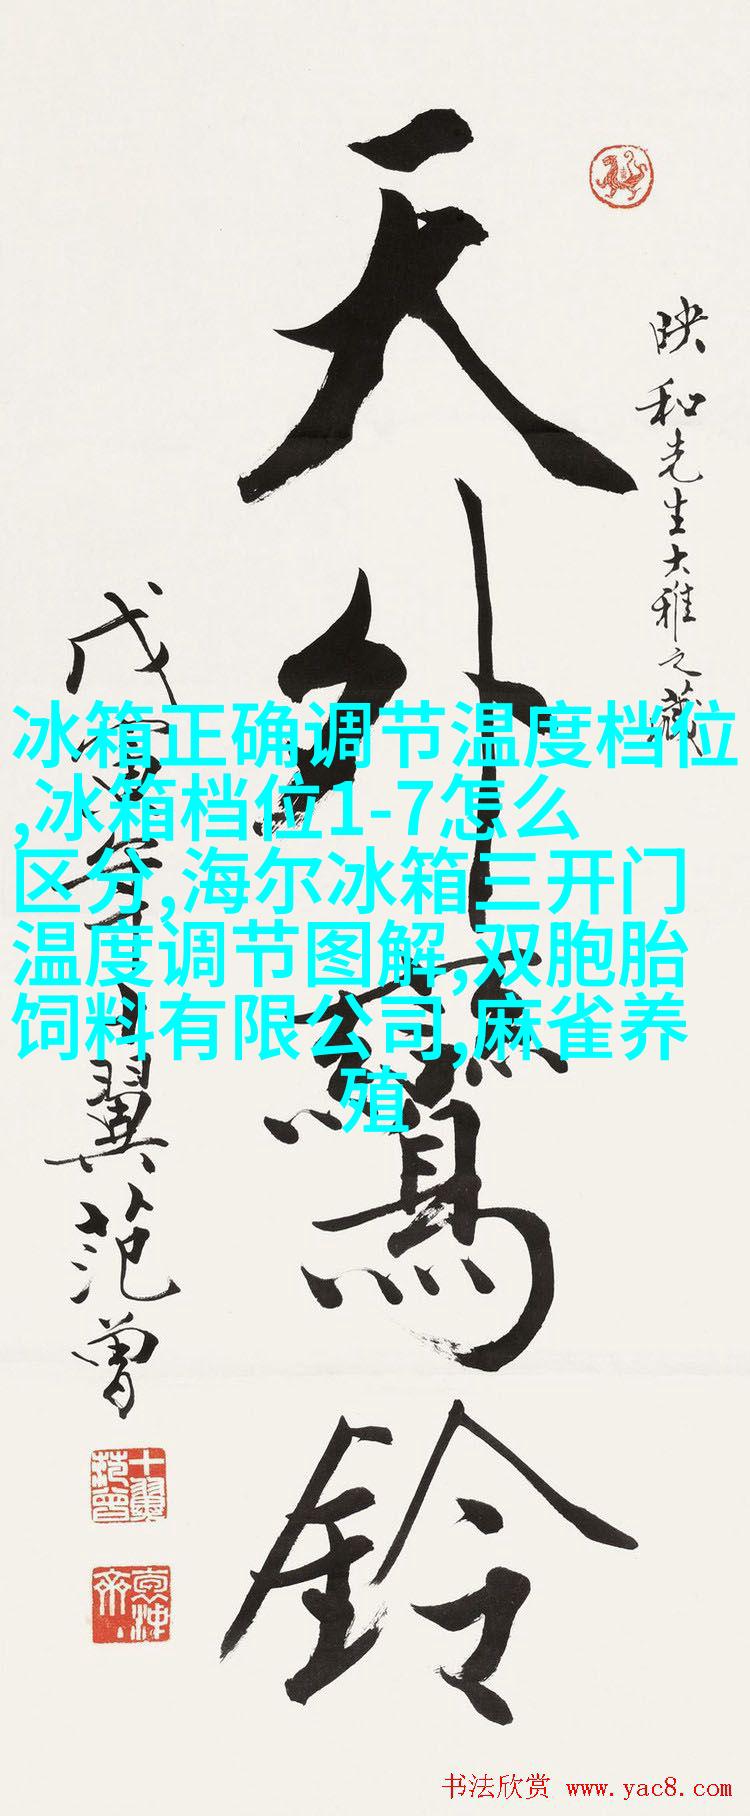 映和先生大雅之藏
天外鸞鈴
冰箱正确调节温度档位
,冰箱档位1-7怎么
区分,海尔冰箱三开门
温度调节图解,双胞胎
饲料有限公司,麻雀养
殖
翼范曾
十翼范曾
书法欣赏 www.yac8.com